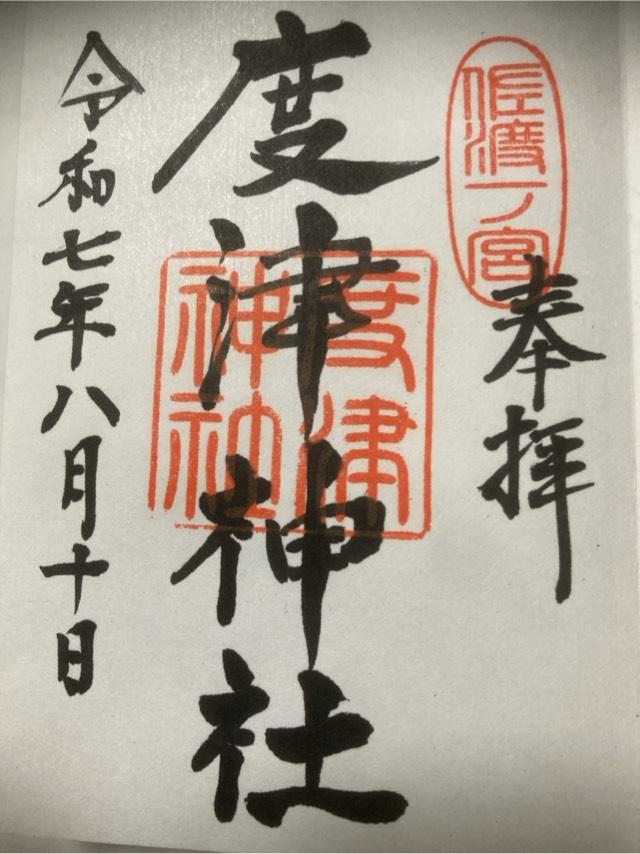 佐渡一ノ宮
奉拝
度津神社
度津
神社
令和七年八月十日